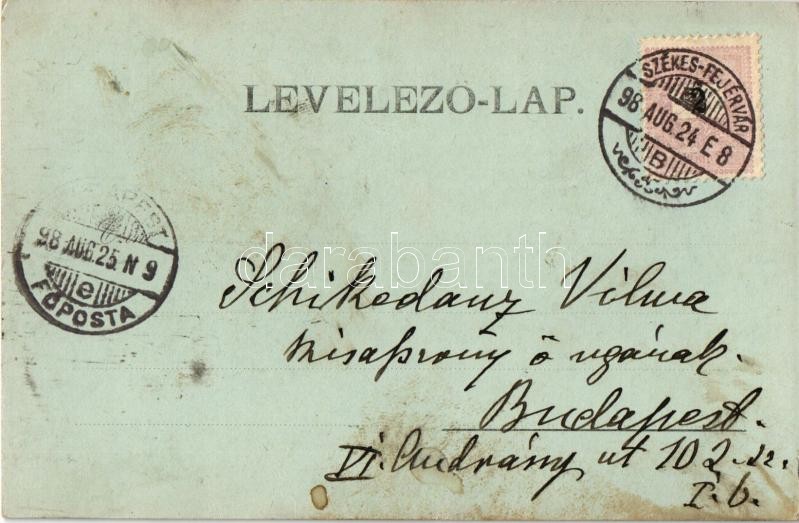 LEVELEZŐ-LAP.
SZÉKES-FEJÉRVÁR
98 AUG. 24 E 8
B
BUDAPEST
98 AUG. 25 N 9
e
FŐPOSTA
darabanth
Schikedanz Vilma
kisasszony ő nagának.
Budapest.
VI. Andrásy út 102. sz.
I. 6.